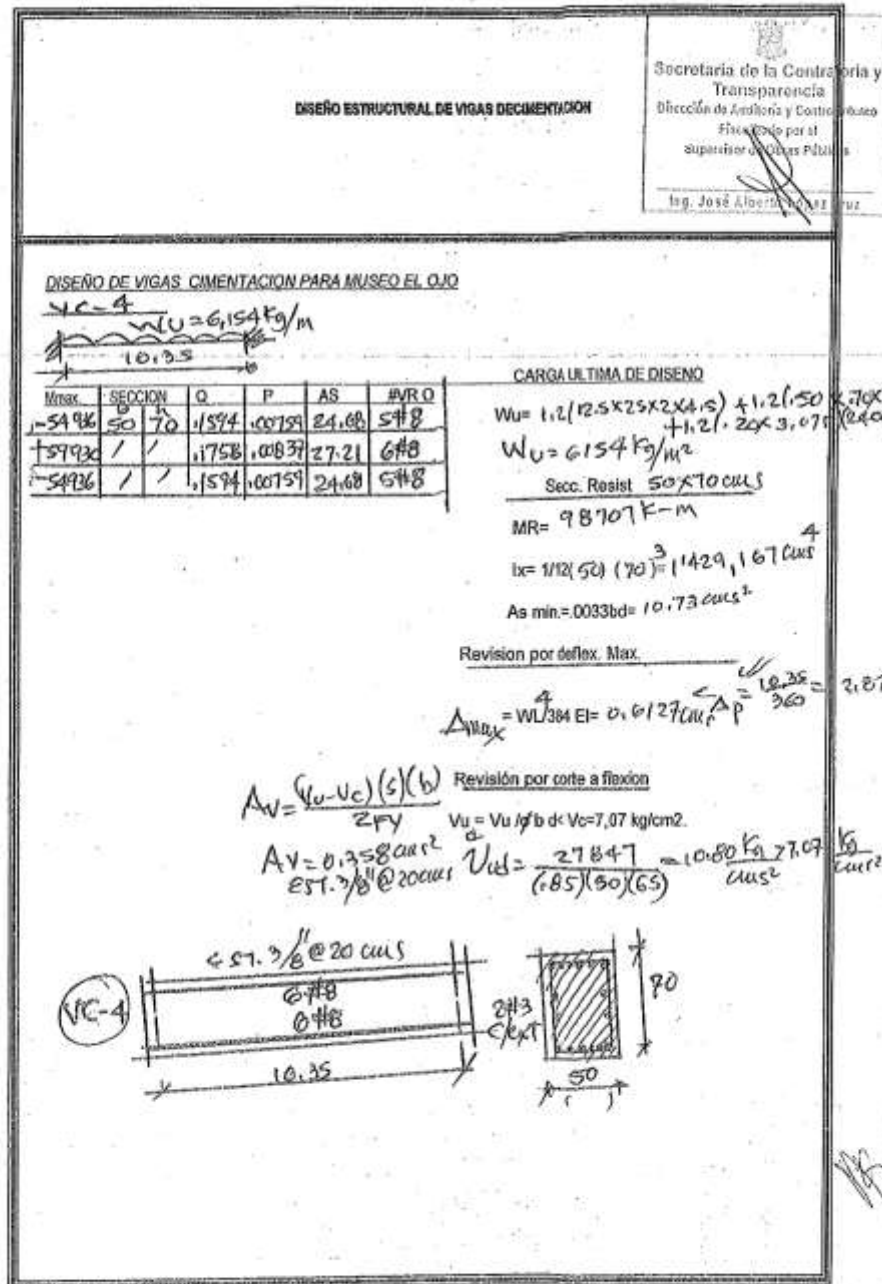 Secretaria de la Contraloria y
Transparencia
Dirección de Auditoria y Control
Fiscalizado por el
Supervisor de Obras Públicas
Ing. José Alberto López Cruz
DISEÑO ESTRUCTURAL DE VIGAS DECIMENTACION
DISEÑO DE VIGAS CIMENTACION PARA MUSEO EL OJO
VC-4
WU=6,154 Kg/m
10.35
Mmax. SECCION Q P AS #VR O
b h
-54936 50 70 .1594 .00759 24.68 5#8
+59930 / / .1756 .00837 27.21 6#8
-54936 / / .1594 .00759 24.68 5#8
CARGA ULTIMA DE DISEÑO
Wu= 1.2(12.5x25x2x4.5) +1.2(.50x.70x
+1.2(.20x3.075)(240
WU=6154 Kg/m²
Secc. Resist 50x70 cms
MR= 98707 K-m
Ix= 1/12(50) (70)³=1'429,167 cms⁴
As min.=.0033bd= 10.73 cms²
Revision por deflex. Max.
Δmax = WL⁴/384 EI= 0.6127cm < Δp = 10.35/360 = 2.87
Revisión por corte a flexion
Av= (Vu-Vc)(s)(b)/2FY
Vu = Vu /ø b d< Vc=7,07 kg/cm2.
Av=0.358 cms²
EST. 3/8"@20cms
Vud= 27847/(.85)(50)(65) =10.80 Kg/cms² >7.07 Kg/cms²
EST. 3/8"@20 cms
VC-4
6#8
6#8
2#3
C/ext
10.35
70
50